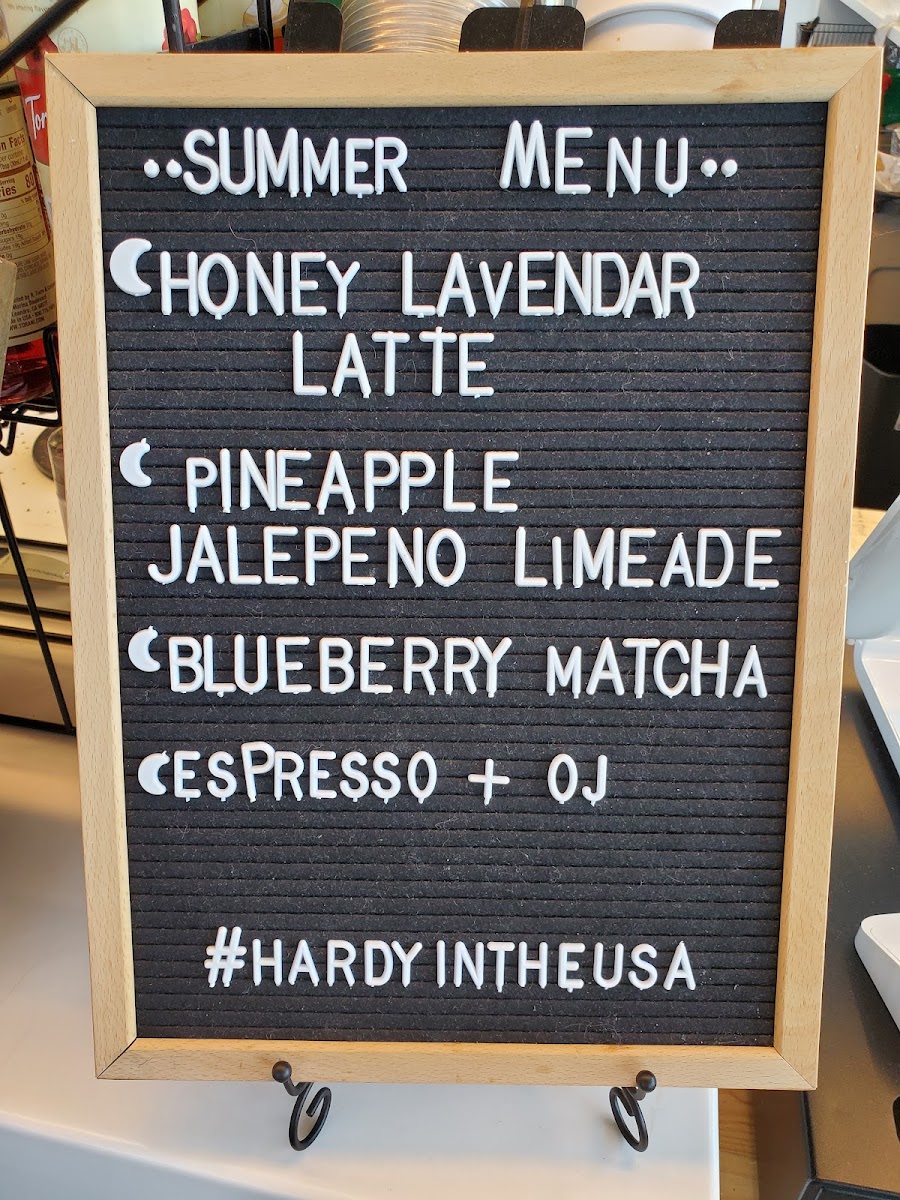 ··SUMMER MENU··
HONEY LAVENDAR
LATTE
PINEAPPLE
JALEPENO LIMEADE
BLUEBERRY MATCHA
ESPRESSO + OJ
#HARDYINTHEUSA